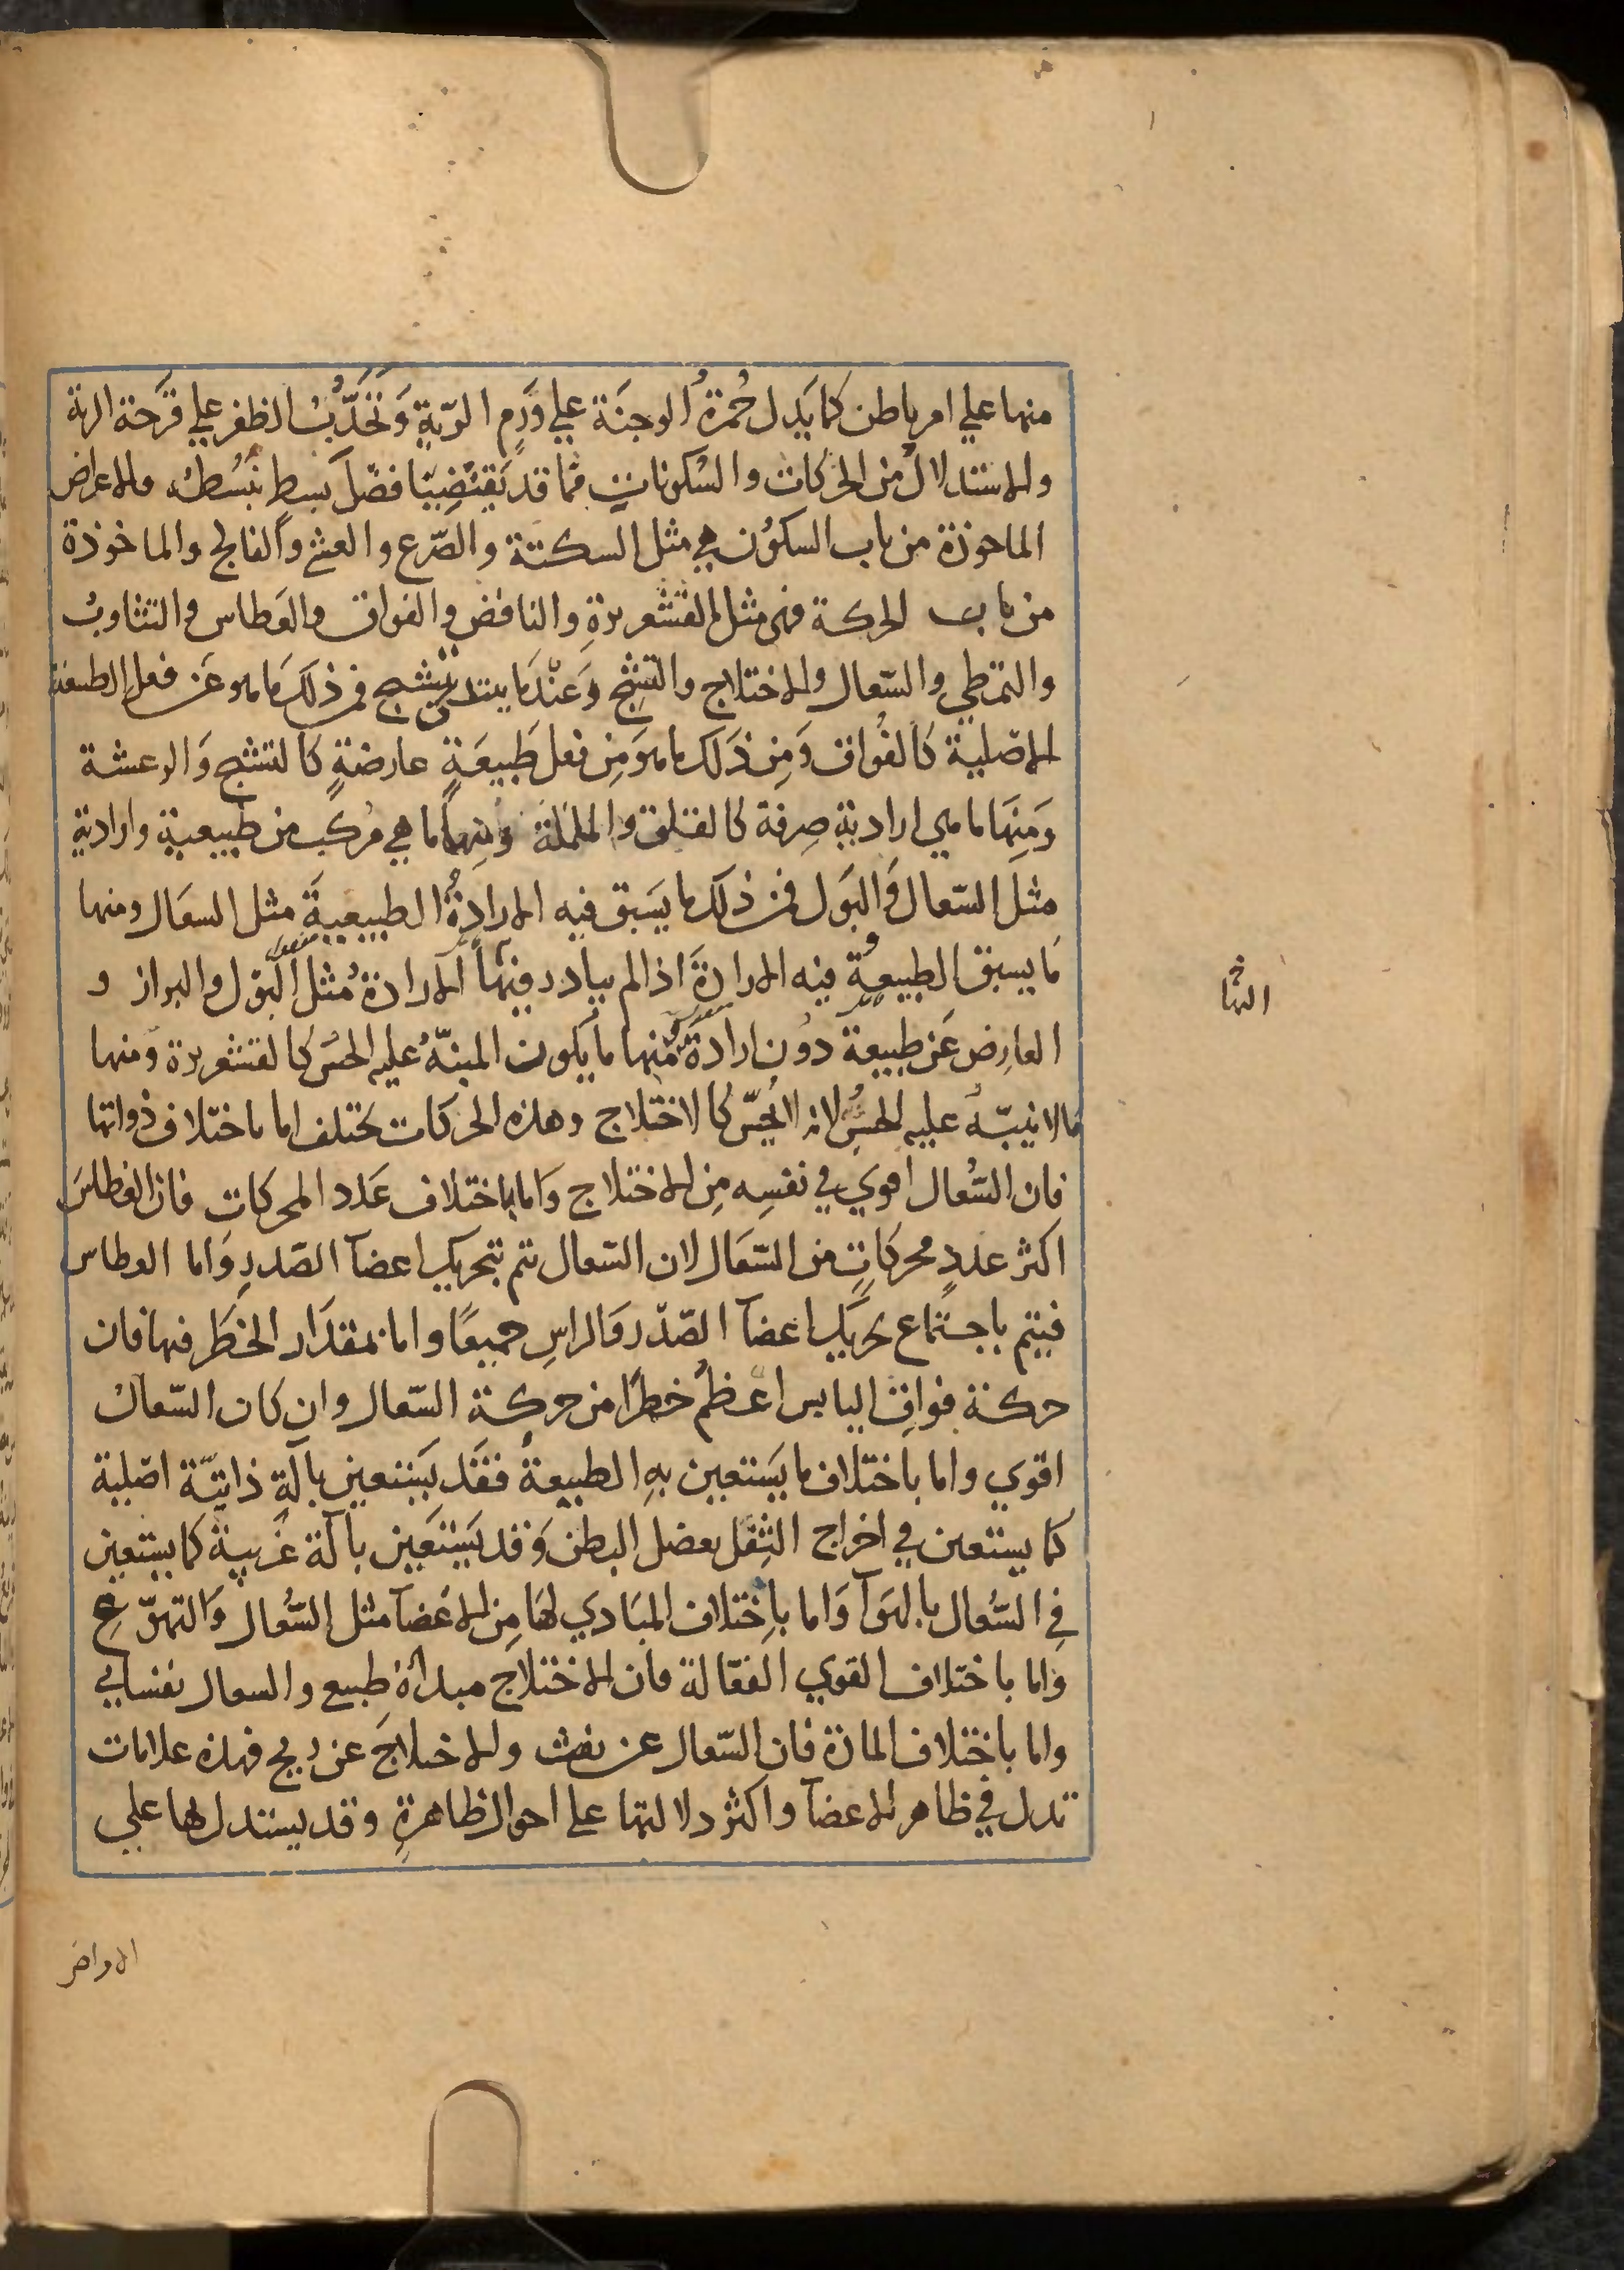 منها علي امر باطن كما يَدِل حُمرَةُ الوجنَة علي وَرَم الرّيَةِ وَتَحَدُّبُ الظفر علي قَرحَة الرية
والاستدلالُ من الحركات والسُكونات مما قد يَقتَضِيبنا فضلَ بسطٍ نَبسُطهُ فالاعراض
الماخوذة من باب السكُون هي مثل السكتة والصّرع والغشي والفالج والماخوذة
من باب الحركة فهي مثل القشعريرةِ والنافض والفواق والعطاس والتثاوبُ
والتمطي والسّعال والاختلاج والتشنج وَعندَ ما يبتدي يتشنج فمن ذلكَ ما هو عَن فعل الطبيعة
الاصلية كالفُواق وَمِن ذَلك ما هوَ مِن فعل طَبيعَةٍ عارضةٍ كالتشنج وَالرعشة
وَمِنهَا ما هي ارادية صِرفة كالقلق والململة وَمنها ما هي مركب من طبيعية وارادية
مثل السّعال وَالبَول فمن ذلك ما يَسَبق فيه الارادةُ الطبيعيةَ مثل السعَال ومنها
مَا يسبق الطبيعةُ فيه الارادةَ اذا لم يبادر فيها الارادة مُثل البَول والبراز و
اليها
العارِض عَن طبيعة دوُن ارادَة مُنها ما يكون المنبّهُ عليه الحسَ كالقشعريرة وَمنها
مَالا ينبّه عليهِ الحِسُ لانه لا يُحِسّ كالاختلاج وهذه الحركات تختلف اما باختلاف ذواتها
فان السُّعال اقوي في نفسِه مِن الاختلاج وَاما باختلاف عَدد المحركات فان العُطاسَ
اكثر عددٍ محركاتٍ من السّعَال لان السّعال يتم بتحريك اعضآ الصّدرِ وَاما العطاس
فيتم باجتماع تحريك اعضآ الصّدر وَالراسِ جميعًا واما بمقدَار الخَطَر فيها فان
حركة فواقِ اليابس اعظمُ خطرًا من حركة السّعال وان كان السّعالُ
اقوي واما باختلاف ما يَستعين بهِ الطبيعةُ فقَد يَستعين بالَةٍ ذاتيّة اصلية
كما يستعين في اخراج الثِفل بعضل البطن وَقد يَستَعين بآلة غَريبةٍ كما يستعين
فِي السُّعال بالهَوآ وَاما باِختلاف المَبَادي لهَا مِن الاعَضآ مثل السُّعال وَالتهوّع
وَاما باختلاف القوي الفعّالة فان الاختلاجَ مبداهُ طبيع والسعال نفساني
واما باختلاف المادة فان السّعال عن نفث والاختلاجَ عن ريح فهذه علامات
تدل في ظاهر الاعضآ واكثر دلالتها علي احوال ظاهرةٍ وقد يستدل بها علي
الامراض